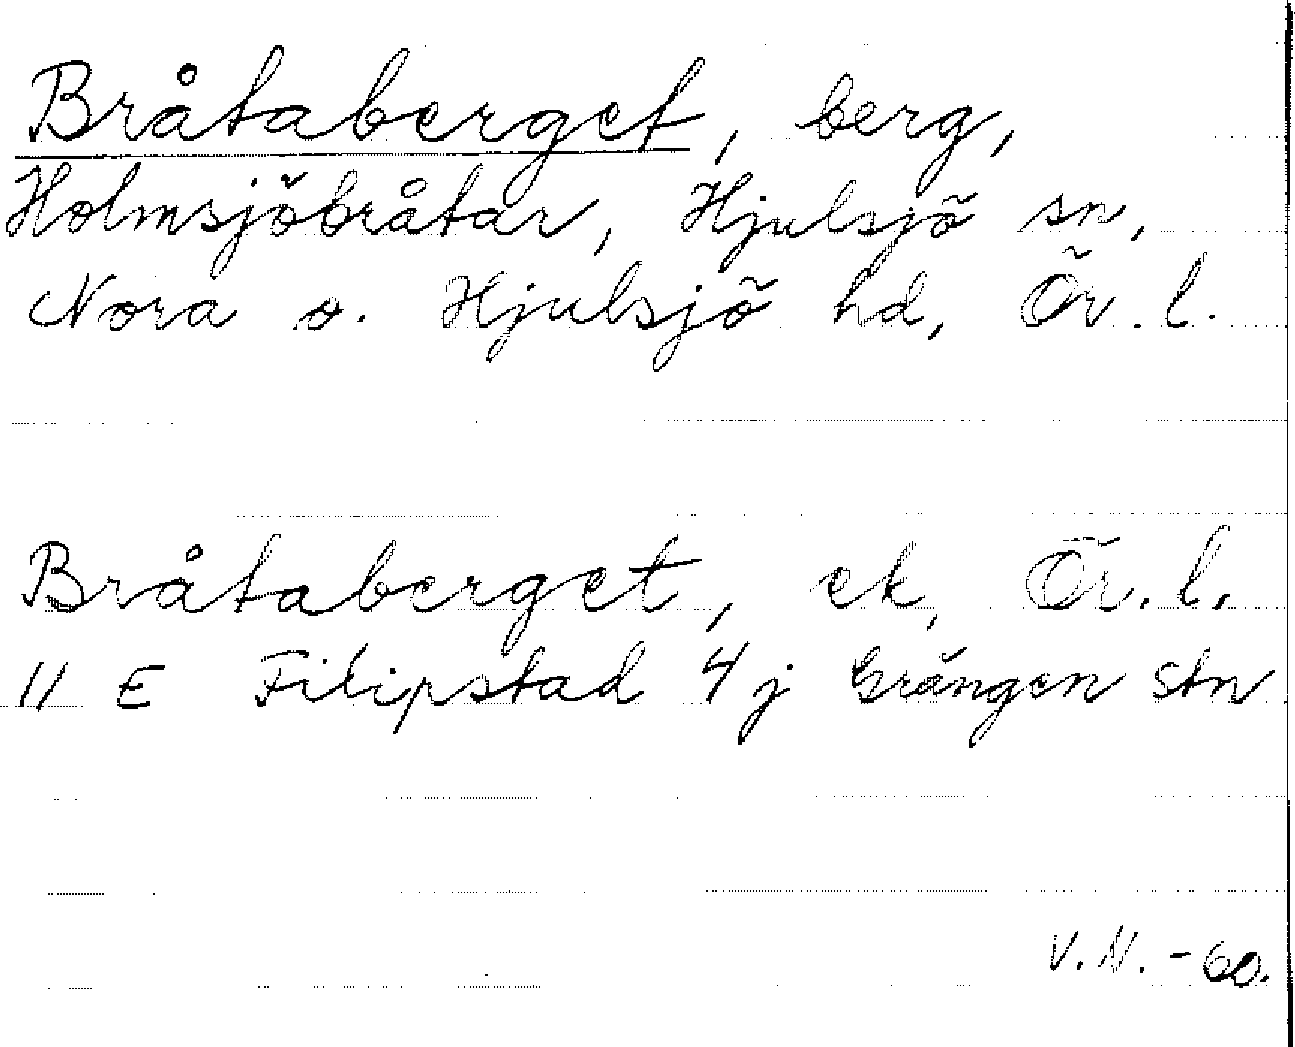 Bråtaberget, berg,
Holmsjöbråtar, Hjulsjö sn,
Nora o. Hjulsjö hd, Ör. l.
Bråtaberget, ek, Ör. l.
11 E Filipstad 4 j Grängen stn
V.N. -60.